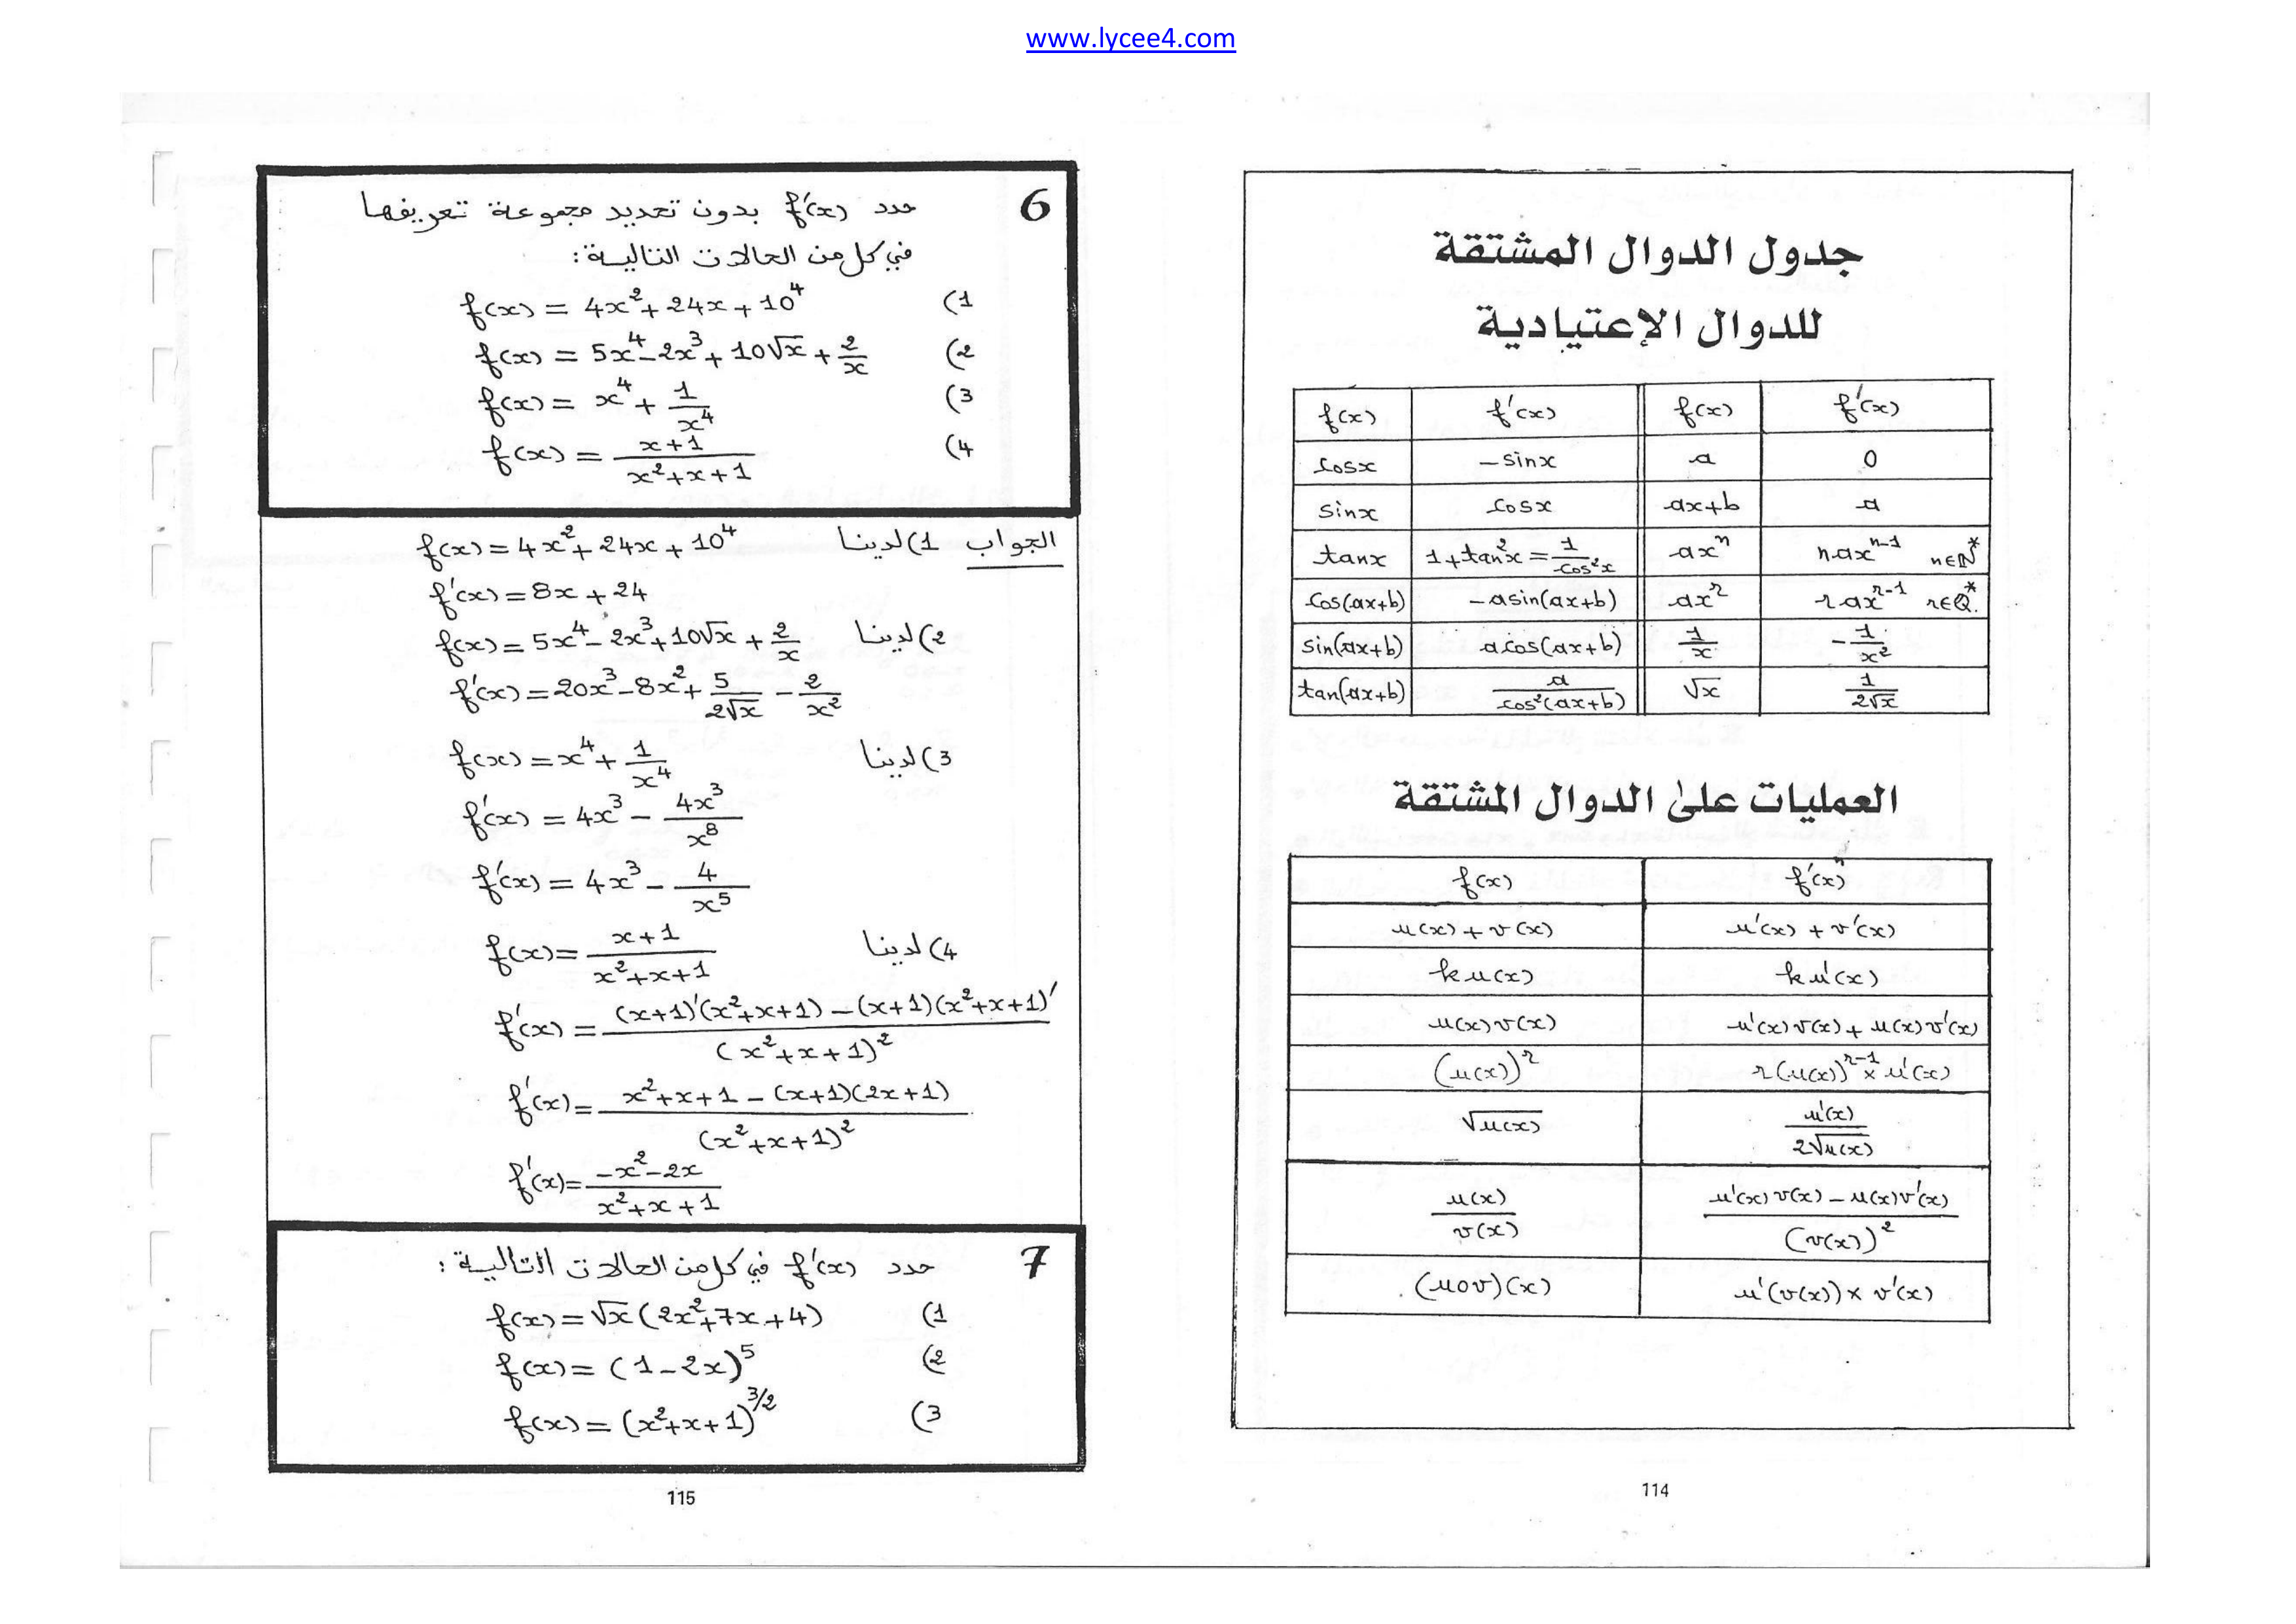 www.lycee4.com
جدول الدوال المشتقة
للدوال الإعتيادية
f(x) f'(x) f(x) f'(x)
cosx -sinx a 0
sinx cosx ax+b a
tanx 1+tan²x = 1/cos²x ax^n n ax^(n-1) n∈ℕ*
cos(ax+b) -a sin(ax+b) ax^r r ax^(r-1) r∈ℚ*
sin(ax+b) a cos(ax+b) 1/x -1/x²
tan(ax+b) a/cos²(ax+b) √x 1/(2√x)
العمليات على الدوال المشتقة
f(x) f'(x)
u(x)+v(x) u'(x)+v'(x)
k u(x) k u'(x)
u(x)v(x) u'(x)v(x)+u(x)v'(x)
(u(x))^r r(u(x))^(r-1) × u'(x)
√u(x) u'(x)/(2√u(x))
u(x)/v(x) (u'(x)v(x)-u(x)v'(x))/(v(x))²
(uov)(x) u'(v(x)) × v'(x)
114
6 حدد f'(x) بدون تحديد مجموعة تعريفها
في كل من الحالات التالية:
1) f(x) = 4x²+24x+10⁴
2) f(x) = 5x⁴-2x³+10√x+2/x
3) f(x) = x⁴+1/x⁴
4) f(x) = (x+1)/(x²+x+1)
الجواب 1) لدينا f(x) = 4x²+24x+10⁴
f'(x) = 8x+24
2) لدينا f(x) = 5x⁴-2x³+10√x+2/x
f'(x) = 20x³-8x²+5/(2√x)-2/x²
3) لدينا f(x) = x⁴+1/x⁴
f'(x) = 4x³-4x³/x⁸
f'(x) = 4x³-4/x⁵
4) لدينا f(x) = (x+1)/(x²+x+1)
f'(x) = ((x+1)'(x²+x+1)-(x+1)(x²+x+1)')/(x²+x+1)²
f'(x) = (x²+x+1-(x+1)(2x+1))/(x²+x+1)²
f'(x) = (-x²-2x)/(x²+x+1)
7 حدد f'(x) في كل من الحالات التالية:
1) f(x) = √x(2x²+7x+4)
2) f(x) = (1-2x)⁵
3) f(x) = (x²+x+1)^(3/2)
115